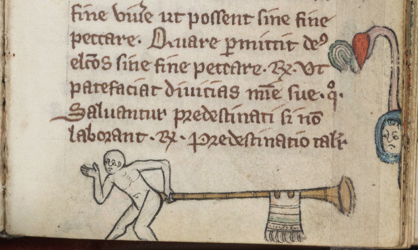 fine viuͤe ut possent sine fine
peccare. Quare ꝑmittit deꝰ
elc̄os sine fine peccare. ℞. Vt
patefaciat diuicias mīe sue. q̄.
Saluantur predestinati si nō
laborant. ℞. Predestinatio